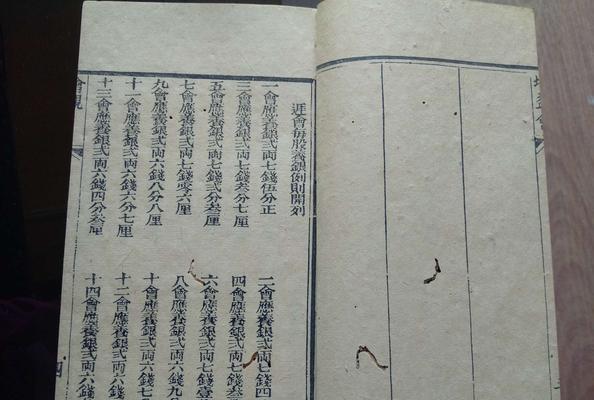 會每股養銀例則開列
一會應養銀弍両七錢伍分正
二會應養銀弍両七錢四
三會應養銀弍両七錢叁分七厘
四會應養銀弍両七錢叁
五會應養銀弍両七錢弍分叁厘
六會應養銀弍両七錢壹
七會應養銀弍両七錢零六厘
八會應養銀弍両六錢九
九會應養銀弍両六錢八分八厘
十會應養銀弍両六錢七
十一會應養銀弍両六錢六分七厘
十二會應養銀弍両六錢
十三會應養銀弍両六錢四分叁厘
十四會應養銀弍両六錢
會規